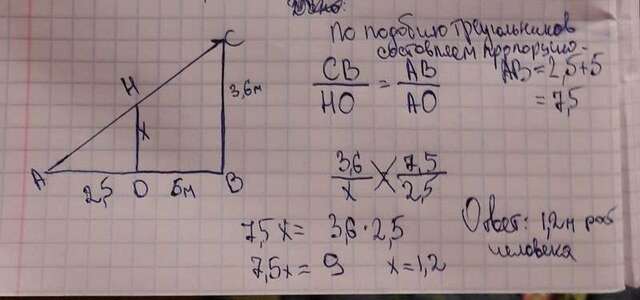 Дано:
По подобию треугольников
составляем пропорцию
CB/HO = AB/AO
AB = 2,5+5
= 7,5
C
H
3,6м
x
A
2,5
O
5м
B
3,6/x = 7,5/2,5
7,5x = 3,6·2,5
7,5x = 9 x=1,2
Ответ: 1,2м рост
человека